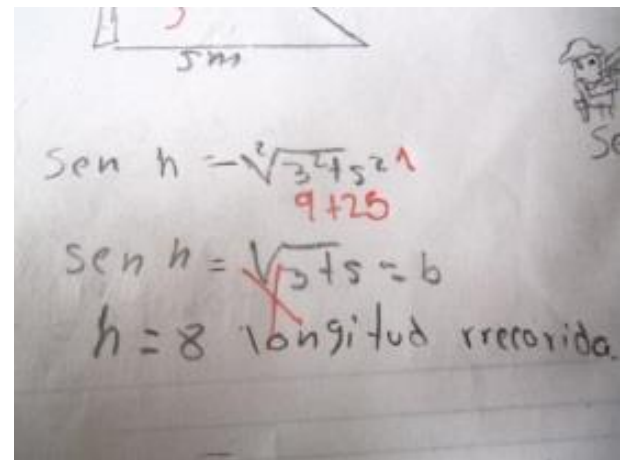 5m
Sen h = √3²+5²
9+25
sen h = √3+5 = 6
h = 8 longitud rrecorida.